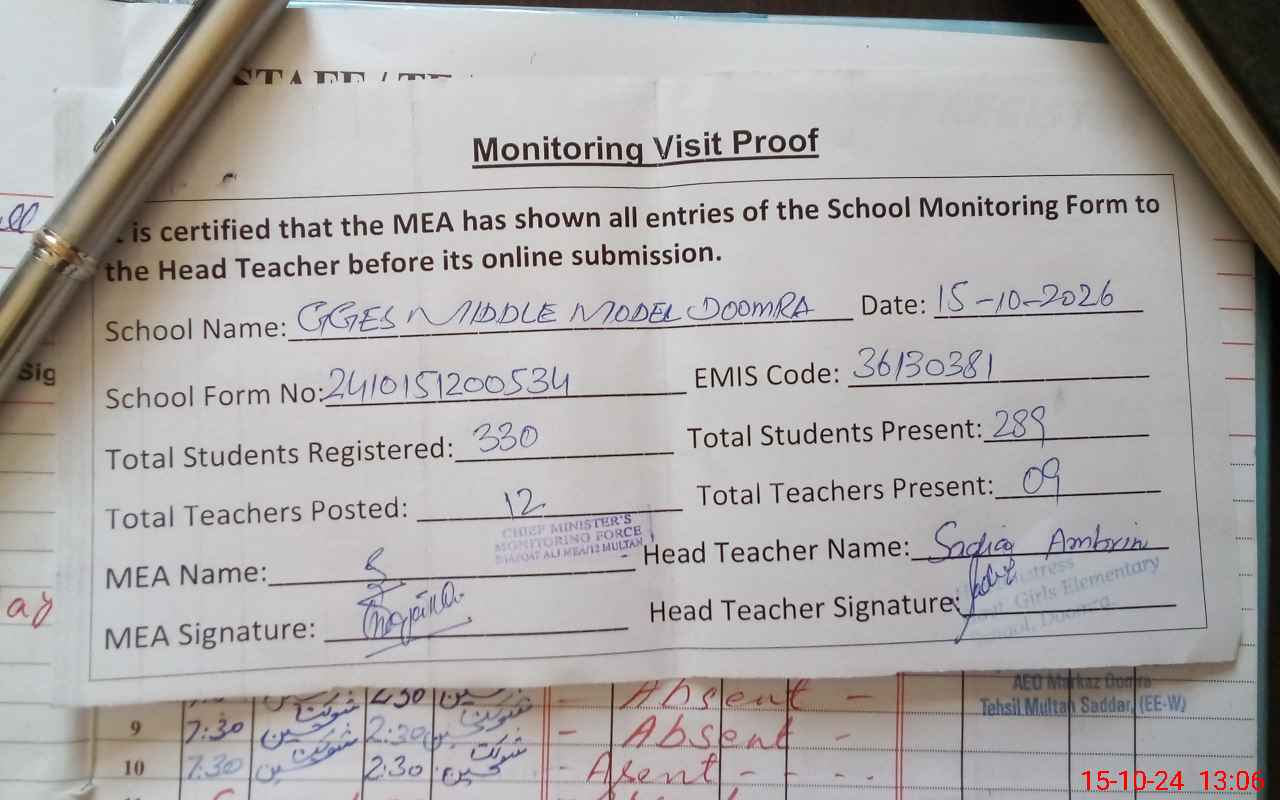 STAFF / TE
Monitoring Visit Proof
is certified that the MEA has shown all entries of the School Monitoring Form to
the Head Teacher before its online submission.
School Name: GGES MIDDLE MODEL DOOMRA Date: 15-10-2026
School Form No: 2410151200534 EMIS Code: 36130381
Sig
Total Students Registered: 330 Total Students Present: 289
Total Teachers Posted: 12 Total Teachers Present: 09
CHIEF MINISTER'S
MONITORING FORCE
ALI MEA/12 MULTAN
MEA Name: Head Teacher Name: Sadia Ambrin
MEA Signature: Head Teacher Signature:
Girls Elementary
2:30 - Absent -
AEO Markaz Domra
Tehsil Multan Saddar, (EE-W)
9 7:30 شوکت حسین 2:30 شوکت حسین - Absent -
10 7:30 شوکت حسین 2:30 شوکت حسین - Asent - - - .
15-10-24 13:06